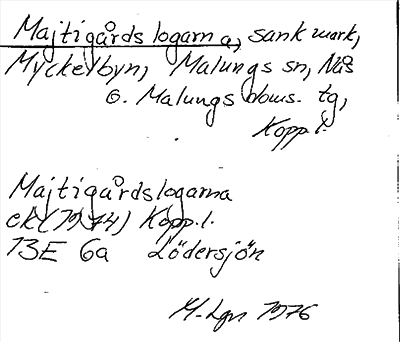 Majtigårds logarna, sank mark,
Myckelbyn, Malungs sn, Nås
o. Malungs doms. tg,
Kopp. l.
Majtigårdslogarna
ek (1974) Kopp. l.
13E 6a Lödersjön
M-Lgn 1976